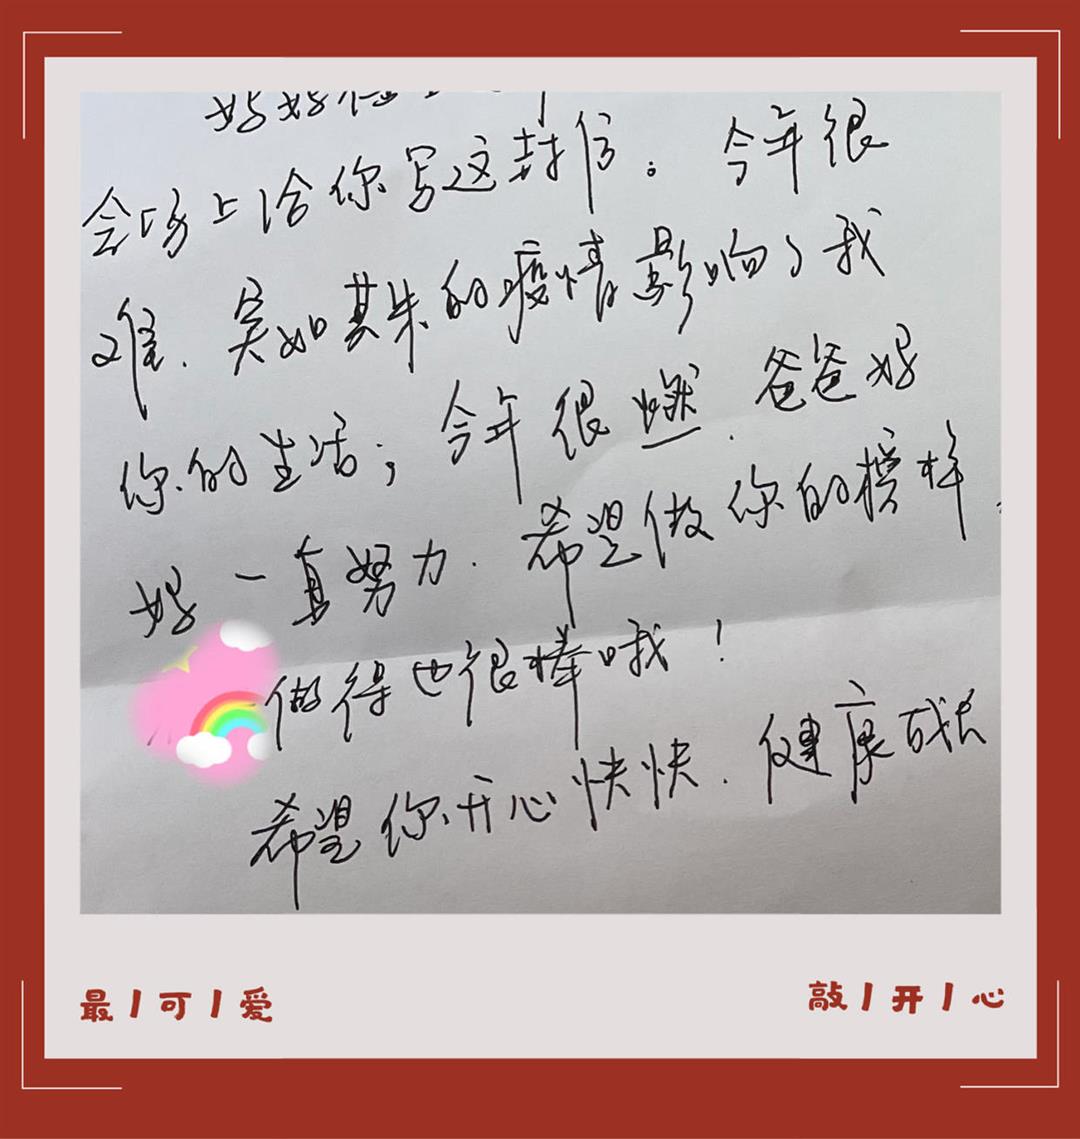 妈妈
会场上给你写这封信。今年很
难、突如其来的疫情影响了我
你的生活；今年很燃、爸爸妈
妈一直努力、希望做你的榜样、
做得也很棒哦！
希望你开心快快、健康成长
最丨可丨爱
敲丨开丨心